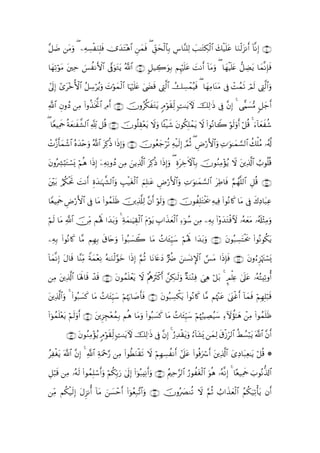 ضَلَّ وَمَن ۖ فَلِنَفْسِهِۦ ٱهْتَدَىٰ فَمَنِ ۖ بِٱلْحَقِّ لِلنَّاسِ ٱلْكِتَٰبَ عَلَيْكَ أَنزَلْنَا إِنَّآ ﴿٤٠﴾
مَوْتِهَا حِينَ ٱلْأَنفُسَ يَتَوَفَّى ٱللَّهُ ﴿٤١﴾ بِوَكِيلٍ عَلَيْهِم أَنتَ وَمَآ ۖ عَلَيْهَا يَضِلُّ فَإِنَّمَا
إِلَىٰٓ ٱلْأُخْرَىٰٓ وَيُرْسِلُ ٱلْمَوْتَ عَلَيْهَا قَضَىٰ ٱلَّتِى فَيُمْسِكُ ۖ مَنَامِهَا فِى تَمُتْ لَمْ وَٱلَّتِى
ٱللَّهِ دُونِ مِن ٱتَّخَذُوا۟ أَمِ ﴿٤٢﴾ يَتَفَكَّرُونَ لِّقَوْمٍ لَءَايَٰتٍ ذَٰلِكَ فِى إِنَّ ۚ مُّسَمًّى أَجَلٍ
جَمِيعًا ٱلشَّفَٰعَةُ لِّلَّهِ قُل ﴿٤٣﴾ يَعْقِلُونَ وَلَا شَيْـًٔا يَمْلِكُونَ لَا كَانُوا۟ أَوَلَوْ قُلْ ۚ شُفَعَآءَ
ٱشْمَأَزَّتْ وَحْدَهُ ٱللَّهُ ذُكِرَ وَإِذَا ﴿٤٤﴾ تُرْجَعُونَ إِلَيْهِ ثُمَّ ۖ وَٱلْأَرْضِ ٱلسَّمَٰوَٰتِ مُلْكُ لَّهُۥ
يَسْتَبْشِرُونَ هُمْ إِذَا دُونِهِۦٓ مِن ٱلَّذِينَ ذُكِرَ وَإِذَا ۖ بِٱلْءَاخِرَةِ يُؤْمِنُونَ لَا ٱلَّذِينَ قُلُوبُ
بَيْنَ تَحْكُمُ أَنتَ وَٱلشَّهَٰدَةِ ٱلْغَيْبِ عَٰلِمَ وَٱلْأَرْضِ ٱلسَّمَٰوَٰتِ فَاطِرَ ٱللَّهُمَّ قُلِ ﴿٤٥﴾
جَمِيعًا ٱلْأَرْضِ فِى مَا ظَلَمُوا۟ لِلَّذِينَ أَنَّ وَلَوْ ﴿٤٦﴾ يَخْتَلِفُونَ فِيهِ كَانُوا۟ مَا فِى عِبَادِكَ
لَمْ مَا ٱللَّهِ مِّنَ لَهُم وَبَدَا ۚ ٱلْقِيَٰمَةِ يَوْمَ ٱلْعَذَابِ سُوٓءِ مِن بِهِۦ لَٱفْتَدَوْا۟ مَعَهُۥ وَمِثْلَهُۥ
بِهِۦ كَانُوا۟ مَّا بِهِم وَحَاقَ كَسَبُوا۟ مَا سَيِّـَٔاتُ لَهُمْ وَبَدَا ﴿٤٧﴾ يَحْتَسِبُونَ يَكُونُوا۟
إِنَّمَآ قَالَ مِّنَّا نِعْمَةً خَوَّلْنَٰهُ إِذَا ثُمَّ دَعَانَا ضُرٌّ ٱلْإِنسَٰنَ مَسَّ فَإِذَا ﴿٤٨﴾ يَسْتَهْزِءُونَ
مِن ٱلَّذِينَ قَالَهَا قَدْ ﴿٤٩﴾ يَعْلَمُونَ لَا أَكْثَرَهُمْ وَلَٰكِنَّ فِتْنَةٌ هِىَ بَلْ ۚ عِلْمٍۭ عَلَىٰ أُوتِيتُهُۥ
وَٱلَّذِينَ ۚ كَسَبُوا۟ مَا سَيِّـَٔاتُ فَأَصَابَهُمْ ﴿٥٠﴾ يَكْسِبُونَ كَانُوا۟ مَّا عَنْهُم أَغْنَىٰ فَمَآ قَبْلِهِمْ
يَعْلَمُوٓا۟ أَوَلَمْ ﴿٥١﴾ بِمُعْجِزِينَ هُم وَمَا كَسَبُوا۟ مَا سَيِّـَٔاتُ سَيُصِيبُهُمْ هَٰٓؤُلَآءِ مِنْ ظَلَمُوا۟
﴿٥٢﴾ يُؤْمِنُونَ لِّقَوْمٍ لَءَايَٰتٍ ذَٰلِكَ فِى إِنَّ ۚ وَيَقْدِرُ يَشَآءُ لِمَن ٱلرِّزْقَ يَبْسُطُ ٱللَّهَ أَنَّ
يَغْفِرُ ٱللَّهَ إِنَّ ۚ ٱللَّهِ رَّحْمَةِ مِن تَقْنَطُوا۟ لَا أَنفُسِهِمْ عَلَىٰٓ أَسْرَفُوا۟ ٱلَّذِينَ يَٰعِبَادِىَ قُلْ ۞
قَبْلِ مِن لَهُۥ وَأَسْلِمُوا۟ رَبِّكُمْ إِلَىٰ وَأَنِيبُوٓا۟ ﴿٥٣﴾ ٱلرَّحِيمُ ٱلْغَفُورُ هُوَ إِنَّهُۥ ۚ جَمِيعًا ٱلذُّنُوبَ
مِّن إِلَيْكُم أُنزِلَ مَآ أَحْسَنَ وَٱتَّبِعُوٓا۟ ﴿٥٤﴾ تُنصَرُونَ لَا ثُمَّ ٱلْعَذَابُ يَأْتِيَكُمُ أَن